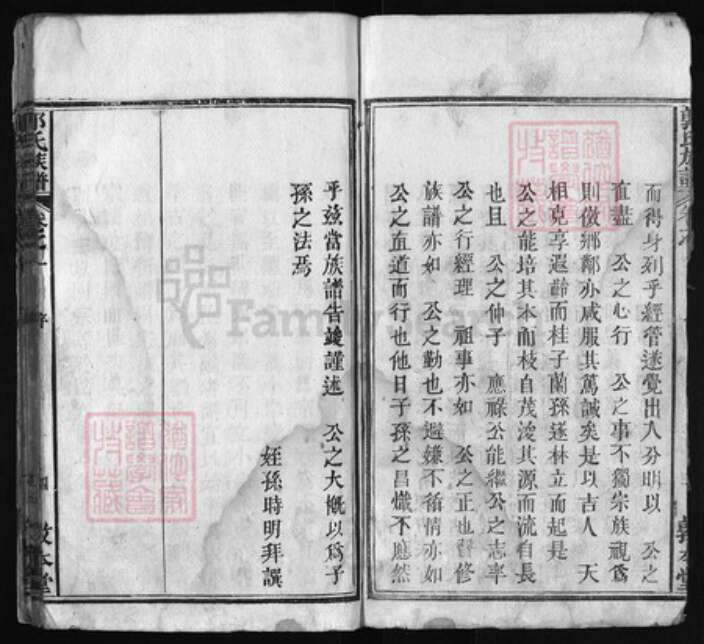 而得身列乎經管遂覺出入分明以 公之
值盡 公之心行 公之事不獨宗族視爲
則傚鄉鄰亦咸服其篤誠矣是以吉人 天
相克享遐齡而桂子蘭孫遂林立而起是
公之能培其本而枝自茂浚其源而流自長
也且 公之仲子 應祿公能繼公之志率
公之行經理 祖事亦如 公之正也督修
族譜亦如 公之勤也不避嫌不循情亦如
公之直道而行也他日子孫之昌熾不應然
乎茲當族譜告竣謹述 公之大槪以爲子
孫之法焉
姪孫時明拜譔
郭氏族譜
卷之一
序
四
敦本堂
FamilySearch